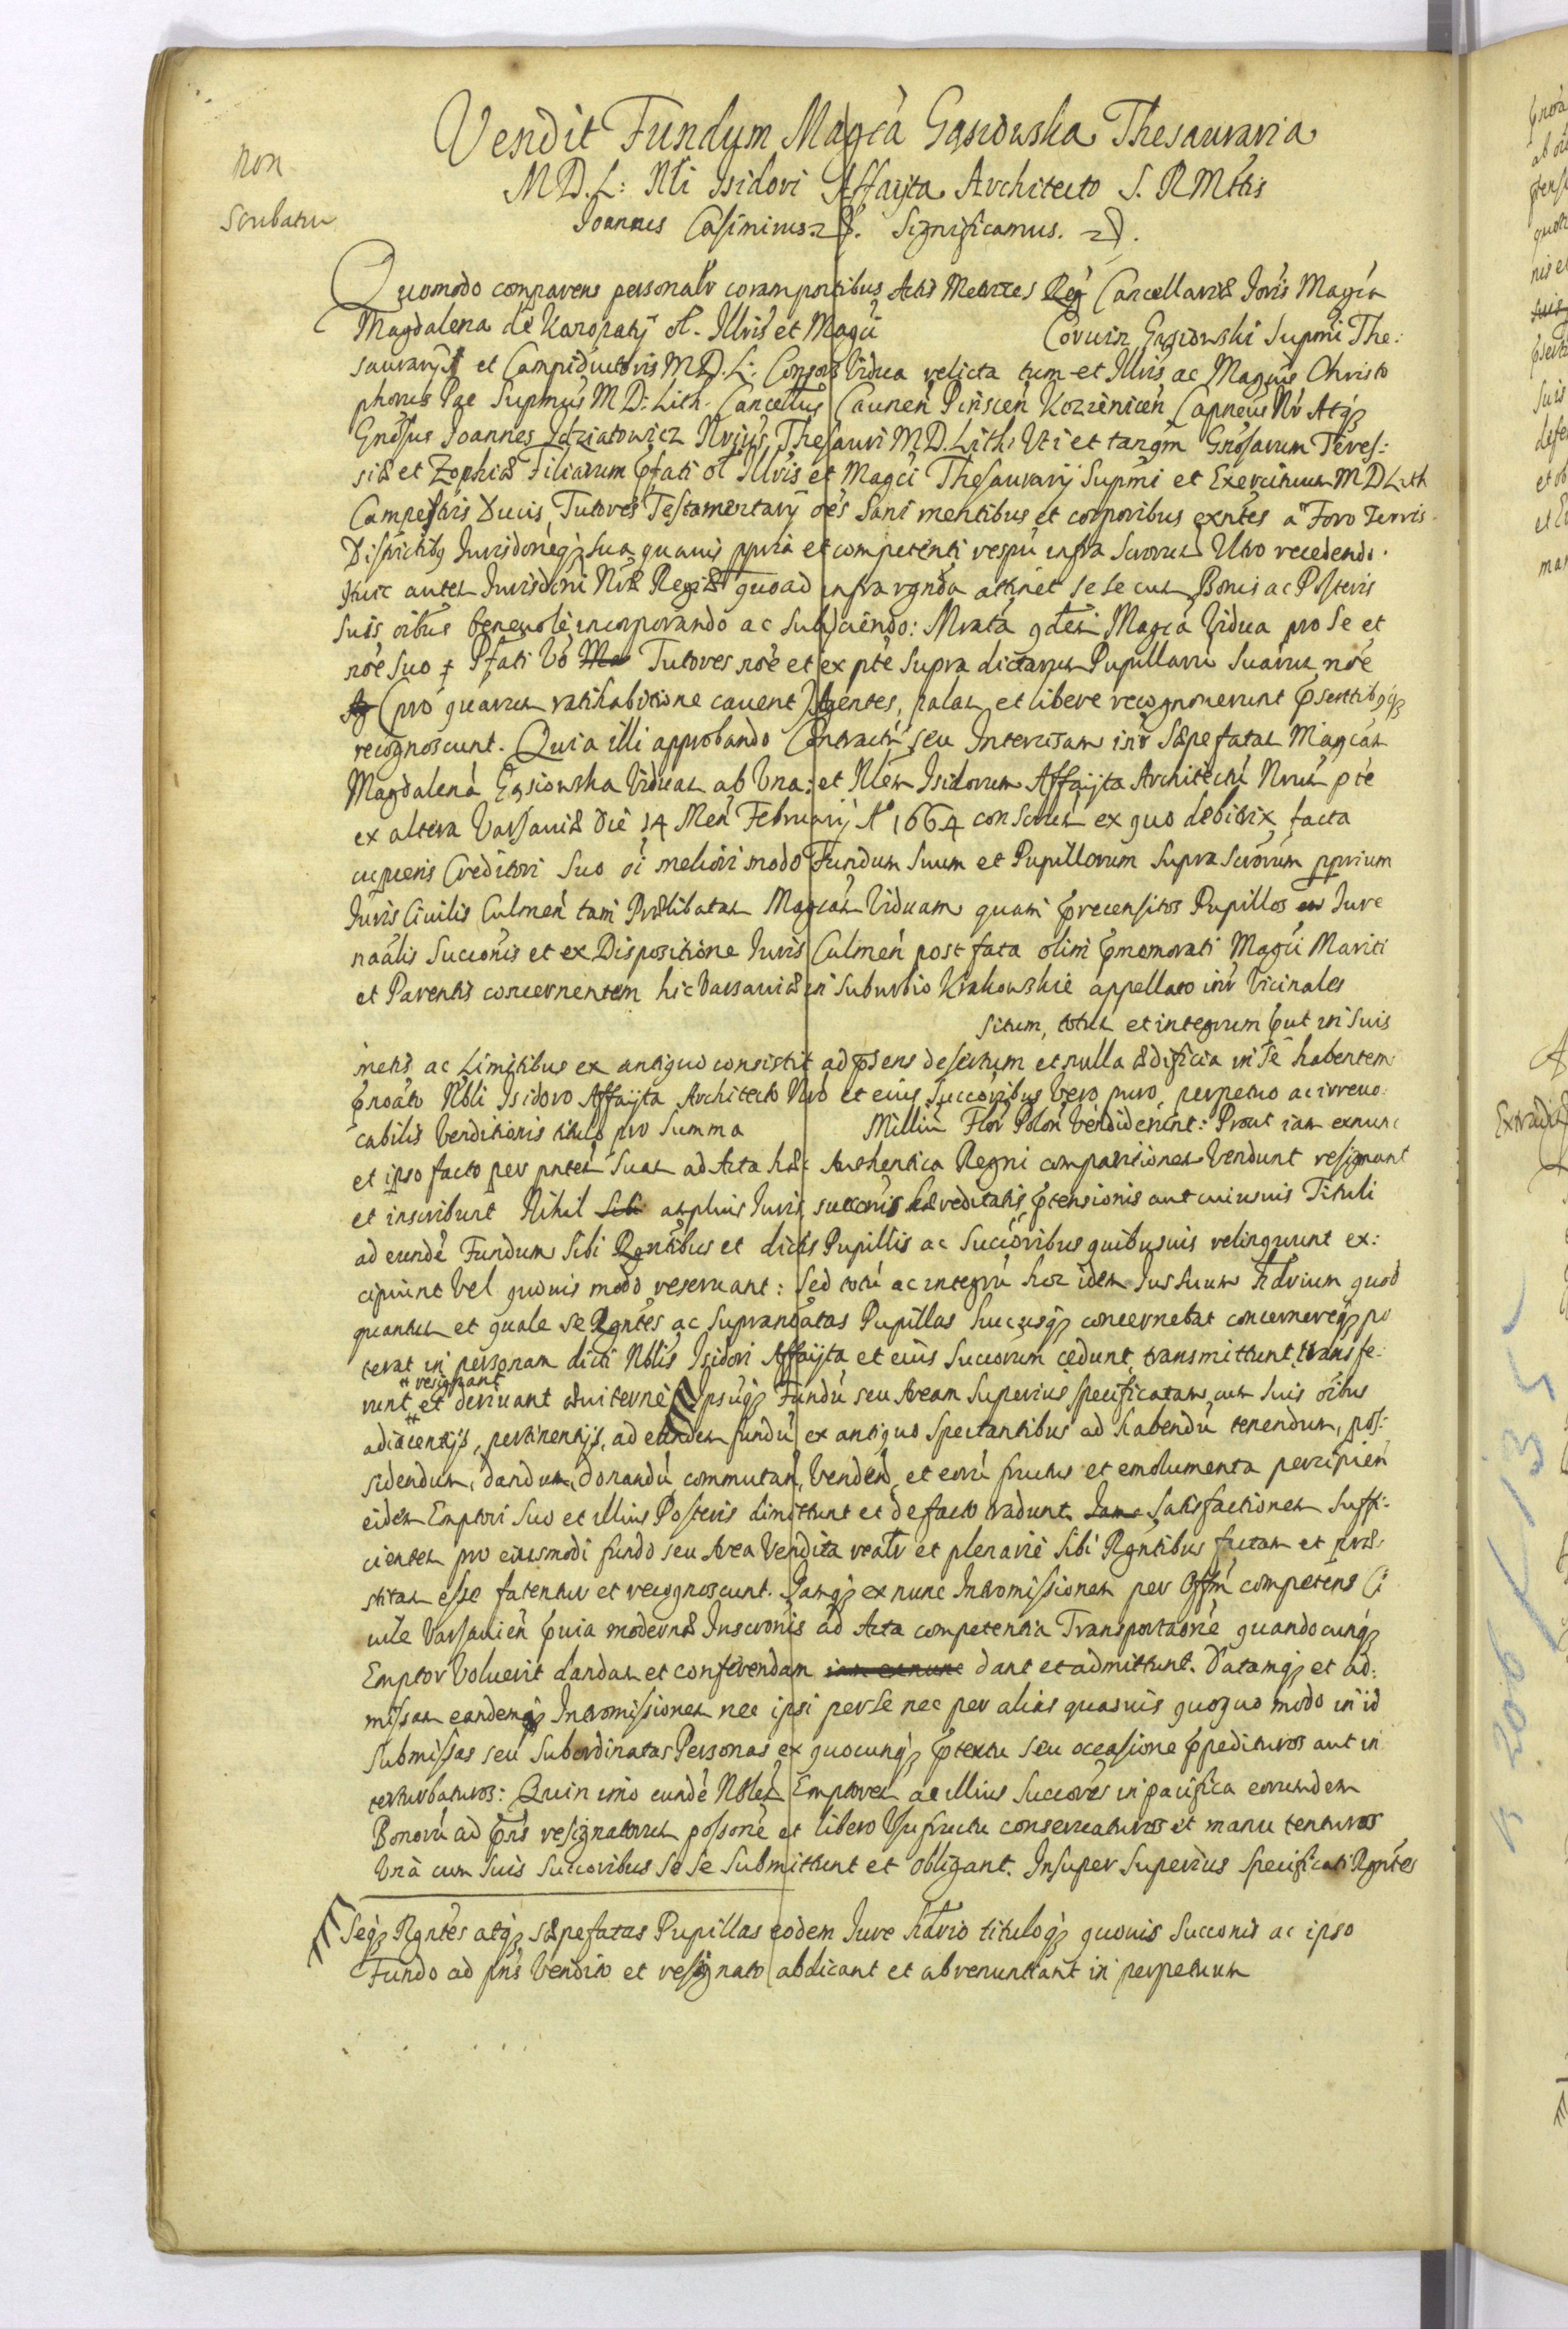 Vendit Fundum Magca Gąsiowska Thesauraria
M D. L: Nli Isidori Affayta Architecto S. R Mttis
Non
Scribatur
Joannes Casimirus. Significamus.
Quomodo comparens personalr coram portibus Actis Metrices Reg Cancellariæ Joris Magca
Magdalena de Karopatij ol. Illris et Magci Corvin Gąsiowski Supmi The:
saurarij et Campiductoris M D. L: Consors Vidua relicta tum et Illris ac Magcus Christo
phorus Pac Supmus M D: Lith. Cancellrius Caunen Pinscen Kozienicen Capneus Nr Atq
Gnosus Joannes Idziatowicz Nrius Thesauri M D. Lith: Uti et tanqm Gnosarum Teres:
siæ et Zophiæ Filiarum pfati ol Illris et Magci Thesaurarij Supmi et Exercituum M D Lith
Campestris Ducis, Tutores Testamentarij oes sani mentibus et corporibus exntes a Foro Terris
Districtibq Jurisdoneq sua quavis ppria et competenti respu infra Scrorum Utro recedendo.
Huic autem Jurisdini Nræ Regiæ quoad infra rgnda attinet se se cum Bonis ac Posteris
suis oibus benevole incorporando ac subjciendo: Mrata qdem Magca Vidua pro Se et
noe suo Pfati Vo Ma Tutores noe et ex pte supra dictarum Pupillaru suarum noe
Ag (pro quarum ratihabitione cavent) Agentes, palam et libere recognoverunt psenttibq
recognoscunt. Quia illi approbando Contractu seu Intercisam inr Sæpefatam Magcam
Magdalena Gąsiowska Viduam ab Una: et Nlem Isidorum Affayta Architectu Nrum pte
ex altera Varsaviæ die 14 Men Februarij Ao 1664 conscrum ex quo debitrix facta
cupiens Creditori suo oi meliori modo Fundum suum et Pupillorum supra Scrorum pprium
Juris Civilis Culmen tam Prælibatam Magcam Viduam quam precensitos Pupillos ex Jure
naalis Succonis et ex Dispositione Juris Culmen post fata olim pmemorati Magci Mariti
et Parentis concernentem hic Varsaviæ in Suburbio Krakowskie appellato inr Vicinales
situm, totum et integrum put in suis
metis ac Limitibus ex antiquo consistit ad psens desertum et nulla ædificia in se habentem
pnoato Nbli Isidoro Affayta Architecto Nro et eius Succoribus Vero, puro, perpetuo ac irrevo
cabilis Venditionis titulo pro Summa Milliu Flor Polon Vendiderunt: Prout iam exnunc
et ipso facto per pntem suam ad Acta hæc Authentica Regni comparitionem Vendunt resignant
et inscribunt Nihil Sibi amplius Juris succonis hæreditatis ptensionis aut cuiusvis Tituli
ad eunde Fundum sibi Rgntibus et dictis Pupillis ac Succoribus quibusvis relinquunt ex:
cipiunt Vel quovis modo reservant: Sed totu ac integru hoc idem Jus suum hdrium quod
quantum et quale se Rgntes ac supranoatas Pupillas hucusq concernebat concernereq po
terat in personam dicti Nblis Isidori Affayta et eius Succorum cedunt, transmittunt, transfe-
resignant
runt et derivant æviterne Ipsuq Fundu seu Aream superius specificatam cum suis oibus
adiacentijs, pertinentijs, ad eundem fundu ex antiquo spectantibus ad habendu tenendum, pos-
sidendum, dandum, donandu, commutan, venden, et eoru fructus et emolumenta percipien
eidem Emptori suo et illius Posteris dimittunt et de facto tradunt. Iam Satisfactionem suffi-
cientem pro eiusmodi fundo seu Area Vendita realr et plenarie sibi Rgntibus factam et præ-
stitam esse fatentur et recognoscunt. Iamq ex nunc Intromissionem per Offm competens Ci
vile Varsavien pvia modernæ Inscronis ad Acta competentia Transportaone quandocunq
Emptor Voluerit dandam et conferendam iam exnunc dant et admittunt. Datamq et ad:
missam eandemq Intromissionem nec ipsi per Se nec per alias quasvis quoquo modo in id
submissas seu subordinatas Personas ex quocunq ptextu seu occasione ppedituros aut in
terturbaturos: Quin imo eunde Nblem Emptorem ac illius Succores in pacifica eorundem
Bonoru ad pns resignatorum possone et libero Usufructu conservaturos et manu tenturos
Una cum suis Succoribus se se submittunt et obligant. Insuper Superius specificati Rgntes
Seq Rgntes atq sæpefatas Pupillas eodem Jure hdrio tituloq quovis Succonis ac ipso
Fundo ad pns Vendito et resignato abdicant et abrenuntiant in perpetuum